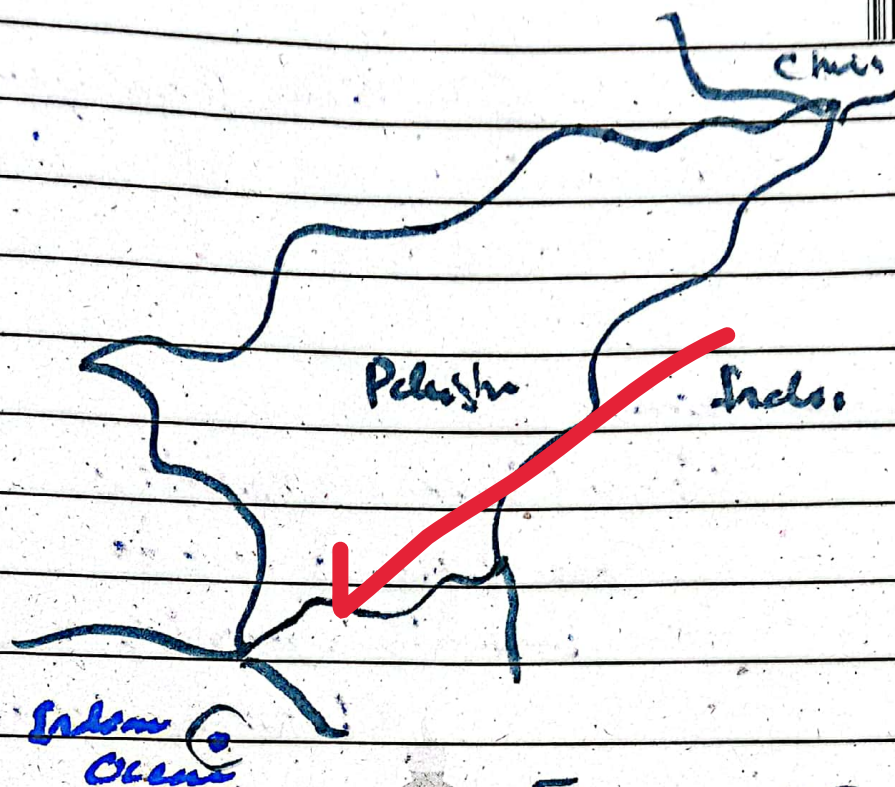 China
Pakistan
India
Indian
Ocean